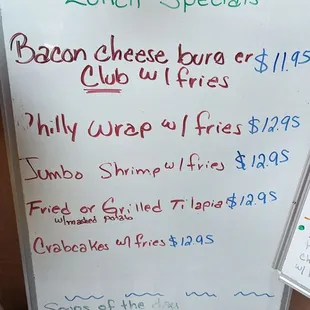 Lunch Specials
Bacon cheese burg er $11.95
Club w/ fries
Philly wrap w/ fries $12.95
Jumbo Shrimp w/ fries $12.95
Fried or Grilled Tilapia $12.95
w/mashed potato
Crabcakes w/ fries $12.95
Soups of the day